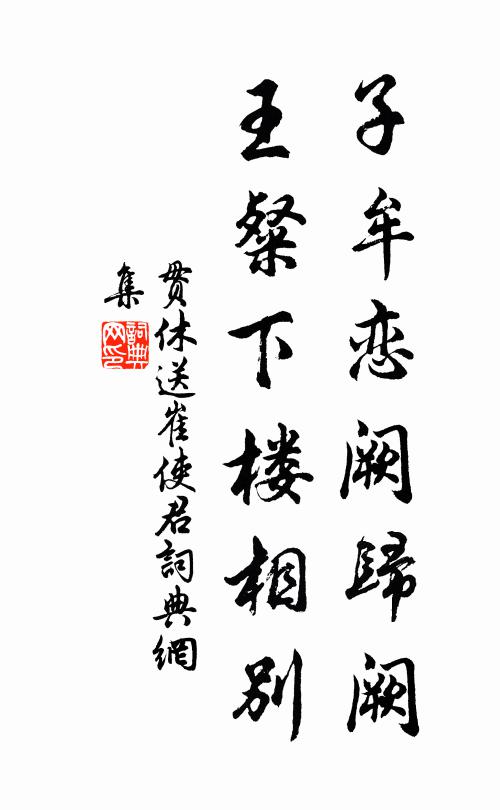 子牟恋阙歸阙
王粲下楼相别
贯休送崔使君詞典網
集
詞典网印